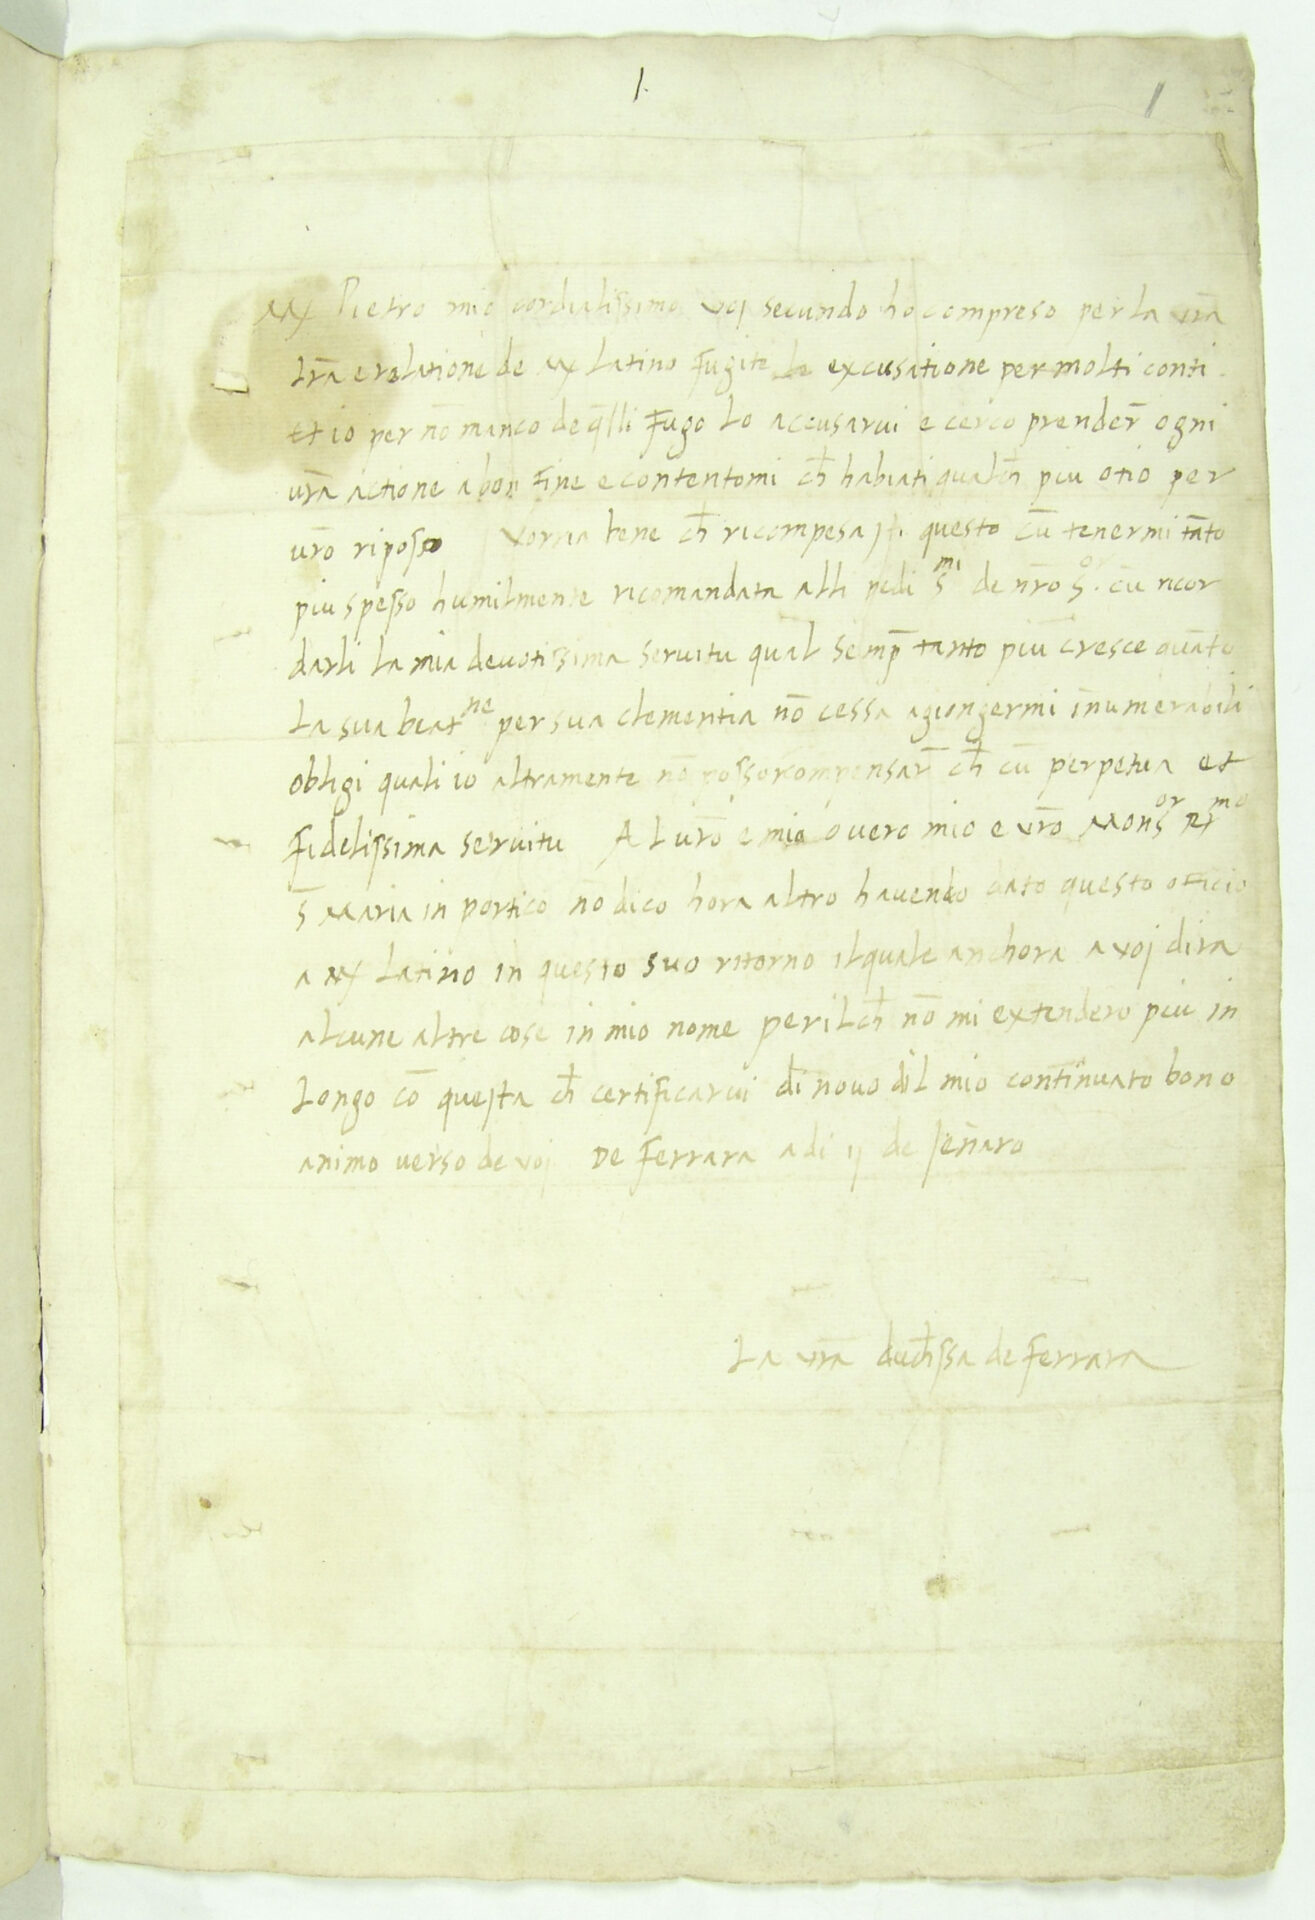 1.
1
Mx Pietro mio cordialissimo voj secundo ho compreso per la vr̄a
lr̄a e relatione de Mx Latino fugite le excusatione per molti conti
et io per nō manco de q̄lli fugo lo accusarvi e cerco prender̄ ogni
vr̄a actione a bon fine e contentomi ch̄ habiati qualch̄ piu otio per
vr̄o riposso vorria bene ch̄ ricompesasti questo cū tenermi tāto
piu spesso humilmente ricomandata alli pedi s̄ᵐⁱ de nr̄o S.ᵒʳ cū ricor
darli la mia devotissima servitu qual semp̄ tanto piu cresce quāto
la sua beatⁿᵉ per sua clementia nō cessa agiongermi īnumerabili
obligi quali io altramente nō posso compensar̄ ch̄ cū perpetua et
fidelissima servitu Al vr̄o e mio overo mio e vr̄o Monsᵒʳ Rᵐᵒ
S̄ Maria in portico nō dico hora altro havendo dato questo officio
a Mx Latino in questo suo ritorno il quale anchora a voj dira
alcune altre cose in mio nome per il ch̄ nō mi extendero piu in
longo cō questa ch̄ certificarvi di novo dil mio continuato bono
animo verso de voj De Ferrara a di ij de Jēnaro
La vr̄a duch̄ssa de Ferrara